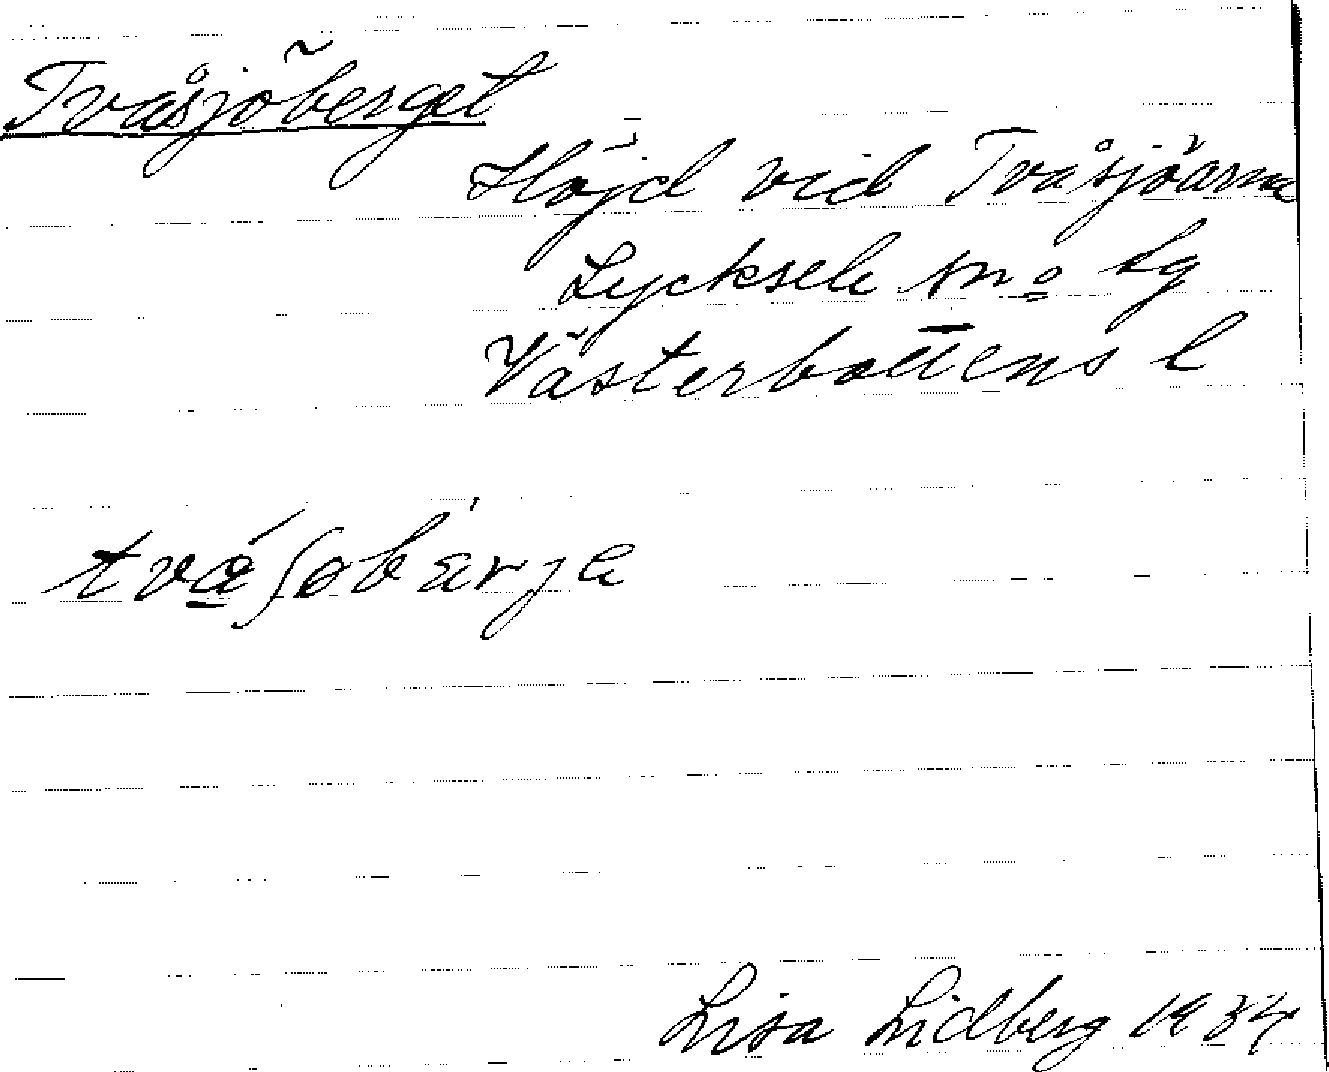 Tvåsjöberget
Höjd vid Tvåsjöarna
Lycksele sn o Lg
Västerbottens l
tvǻʃobärja
Lisa Lidberg 1934